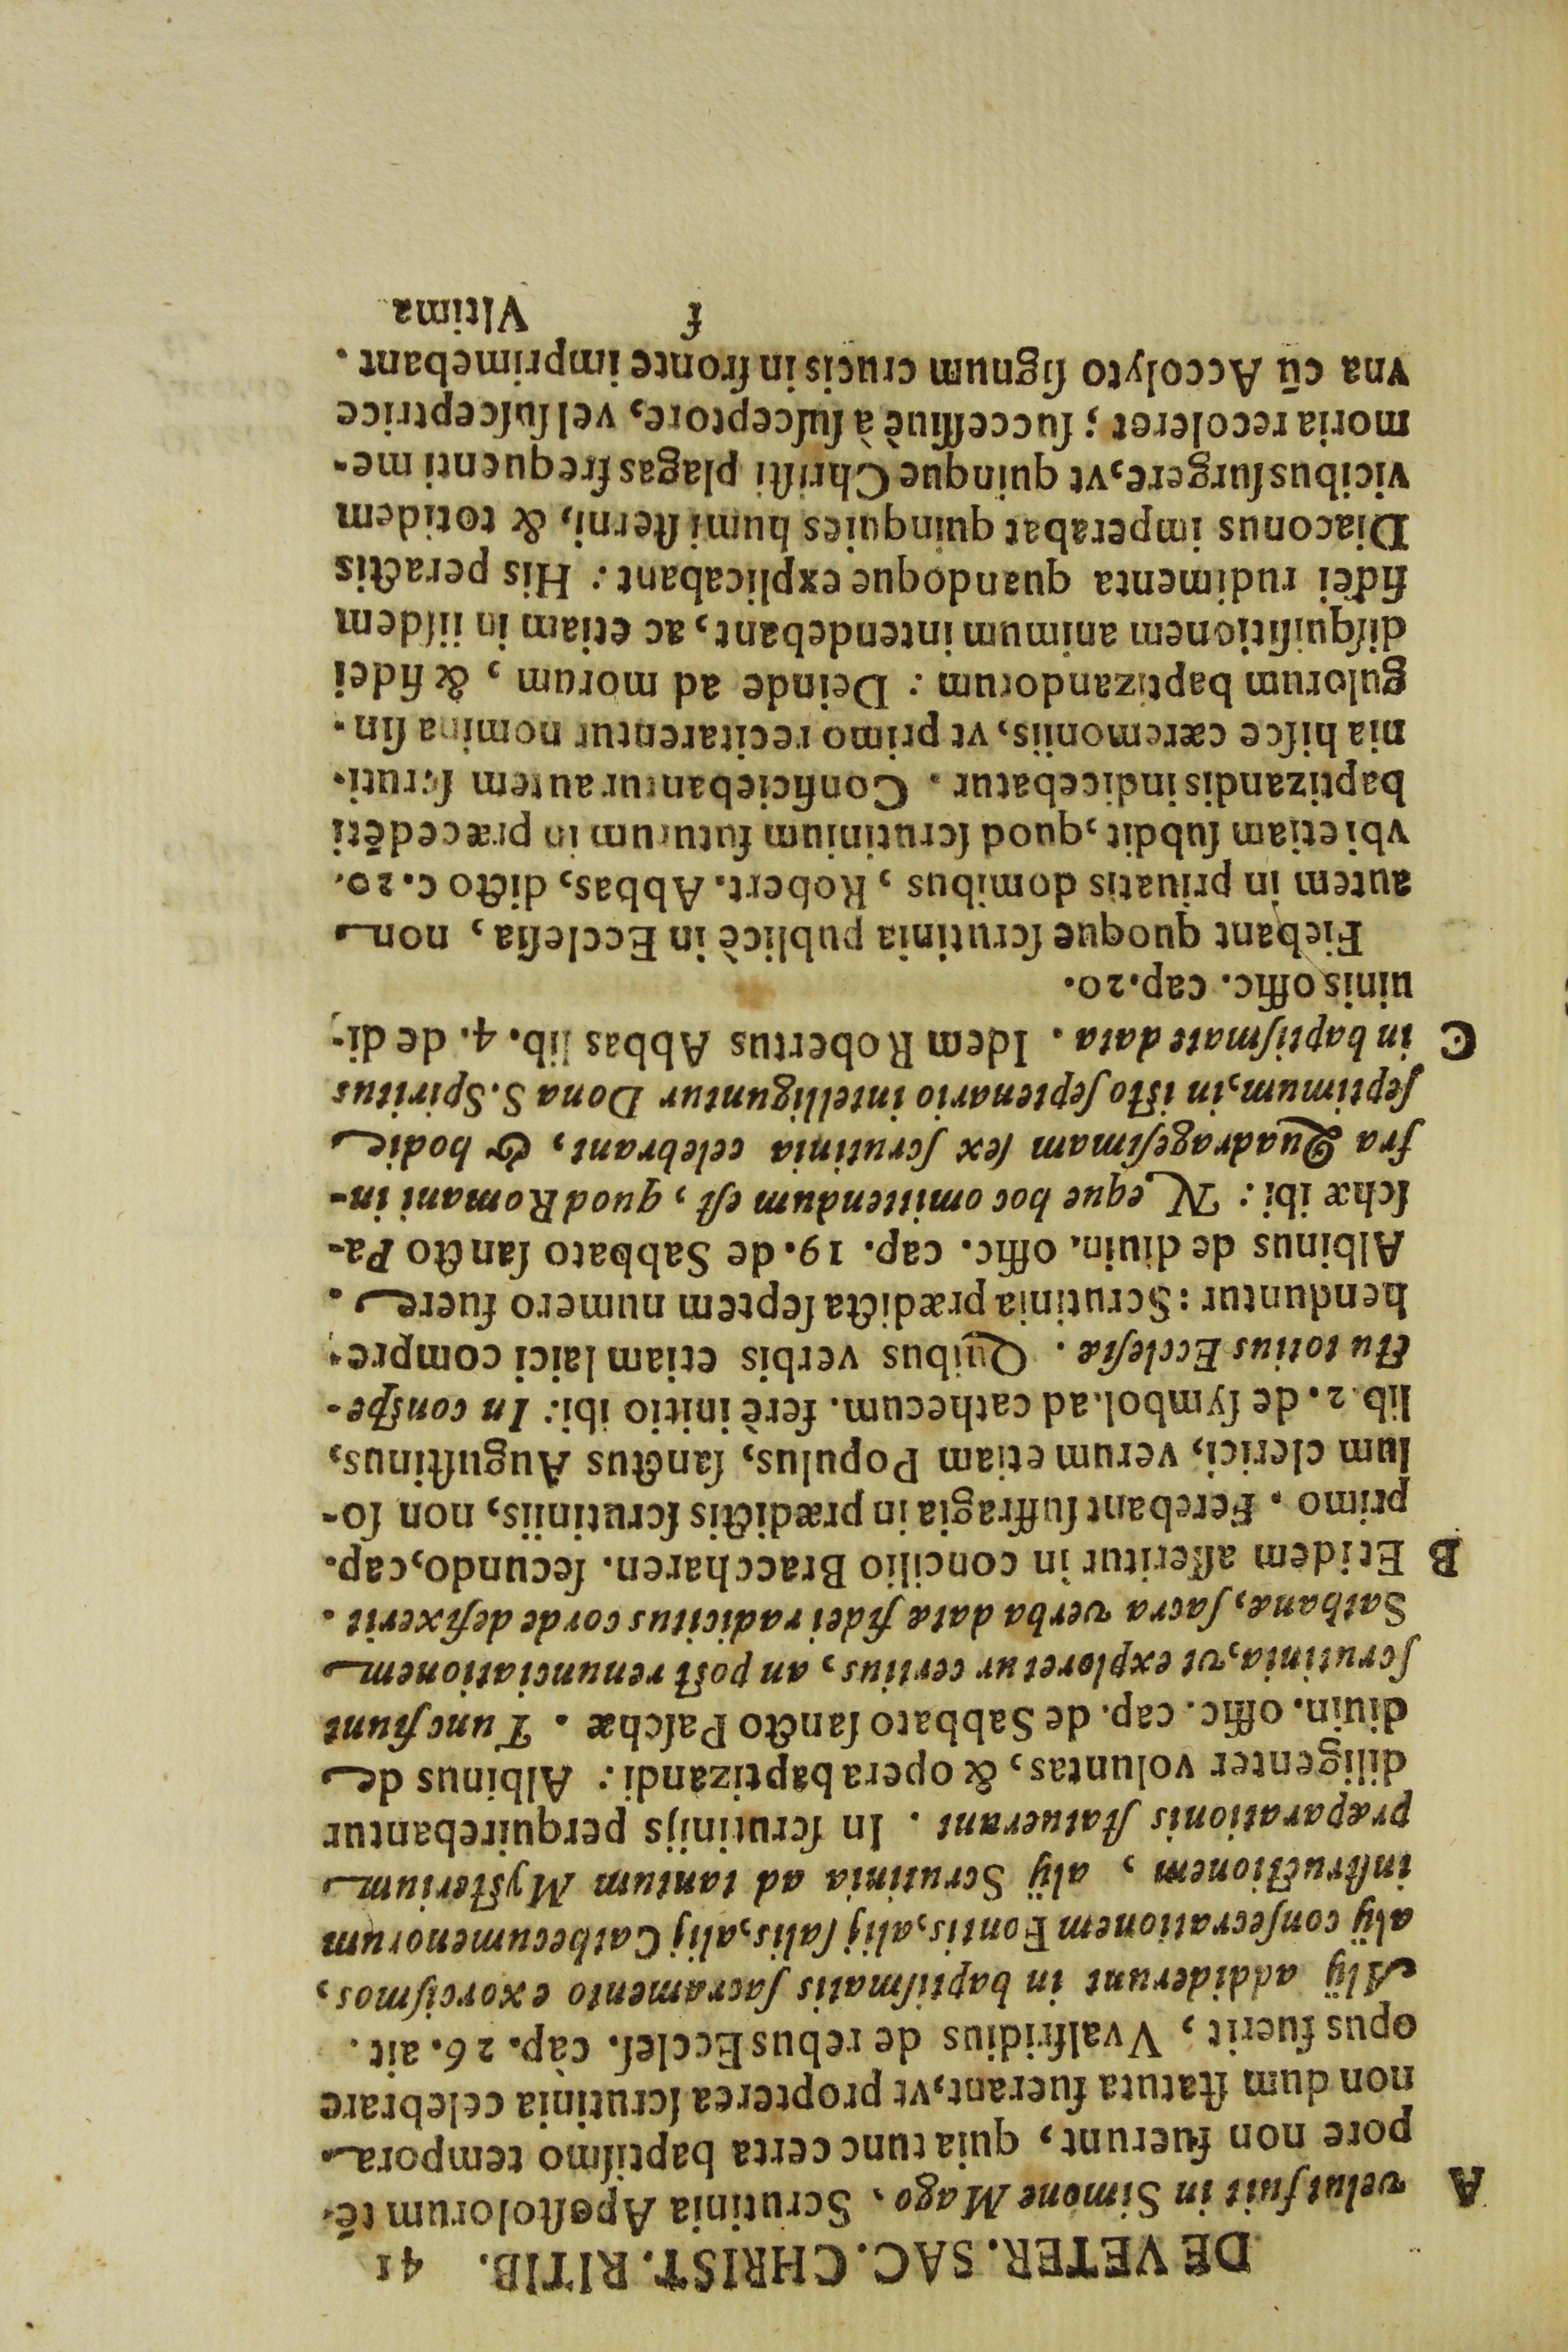 DE VETER. SAC. CHRIST. RITIB. 41
A velut fuit in Simone Mago. Scrutinia Apoſtolorum tē-
pore non fuerunt, quia tunc certa baptiſmo tempora
non dum ſtatuta fuerant, vt propterea ſcrutinia celebrare
opus fuerit, Vvalfridius de rebus Eccleſ. cap. 26. ait.
Alij addiderunt in baptiſmatis ſacramento exorciſmos,
alij conſecrationem Fontis, alij ſalis, alij Cathecumenorum
inſtructionem, alij Scrutinia ad tantum Myſterium
præparationis ſtatuerunt. In ſcrutinijs perquirebantur
diligenter voluntas, & opera baptizandi: Albinus de
diuin. offic. cap. de Sabbato ſancto Paſchæ. Tunc fiunt
ſcrutinia, vt exploretur certius, an poſt renunciationem
Sathanæ, ſacra verba datæ fidei radicitus corde defixerit.
B Et idem aſſeritur in concilio Braccharen. ſecundo, cap.
primo. Ferebant ſuffragia in prædictis ſcrutiniis, non ſo-
lum clerici, verum etiam Populus, ſanctus Auguſtinus,
lib. 2. de ſymbol. ad cathecum. ferè initio ibi: In conſpe-
ctu totius Eccleſiæ. Quibus verbis etiam laici compre-
henduntur: Scrutinia prædicta ſeptem numero fuere.
Albinus de diuin. offic. cap. 19. de Sabbato ſancto Pa-
ſchæ ibi: Neque hoc omittendum eſt, quod Romani in-
fra Quadrageſimam ſex ſcrutinia celebrant, & hodie
ſeptimum, in iſto ſeptenario intelliguntur Dona S. Spiritus
C in baptiſmate data. Idem Robertus Abbas lib. 4. de di-
uinis offic. cap. 20.
Fiebant quoque ſcrutinia publicè in Eccleſia, non
autem in priuatis domibus, Robert. Abbas, dicto c. 20.
vbi etiam ſubdit, quod ſcrutinium futurum in præcedēti
baptizandis indicebatur. Conficiebantur autem ſcruti-
nia hiſce cæremoniis, vt primo recitarentur nomina ſin-
gulorum baptizandorum: Deinde ad morum, & fidei
diſquiſitionem animum intendebant, ac etiam in iiſdem
fidei rudimenta quandoque explicabant: His peractis
Diaconus imperabat quinquies humi ſterni, & totidem
vicibus ſurgere, vt quinque Chriſti plagas frequenti me-
moria recoleret; ſucceſſiuè à ſuſceptore, vel ſuſceptrice
vna cū Accolyto ſignum crucis in fronte imprimebant.
f Vltima